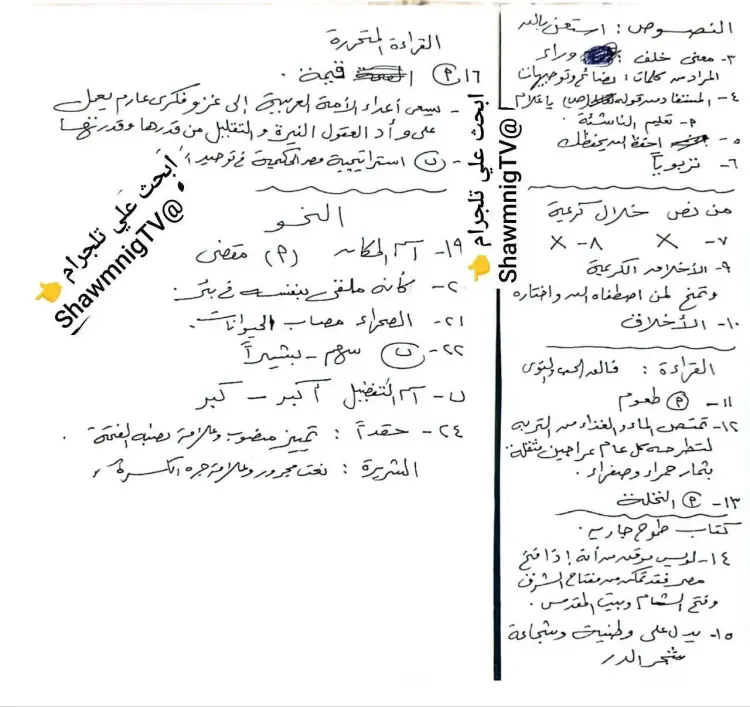 النصوص : استعن بالله
٣- معنى خلف : وراء
المراد من كلمات : نصائح وتوجيهات
٤- المستفاد من قوله يا غلام
م- تعليم الناشئة
٥- احفظ الله يحفظك
٦- تربوياً
من نص خلال كريمة
٧- X ٨- X
٩- الأخلاق الكريمة
وتمنح لمن اصطفاه الله واختاره
١٠- الأخلاق
القراءة : فالق الحب والنوى
١١- م طعوم
١٢- تمتص الماء والغذاء من التربة
لتطرح كل عام عراجين مثقلة
بثمار حمراء وصفراء .
١٣- م النخلة
كتاب طموح جارية .
١٤- لويس موقن من أنه إذا فتح
مصر فقد تمكن من مفتاح الشرق
وفتح الشام وبيت المقدس .
١٥- يدل على وطنية وشجاعة
شجر الدر
القراءة المتحررة
١٦ م قيمة .
- يسعى أعداء الأمة العربية إلى غزو فكرى عارم يعمل
على وأد العقول النيرة والتقليل من قدرها وقدرتها
- ب استراتيجية مصر الحكيمة فى توحيد
النحو
١٩- اسم المكان (م) مقضى
٢٠- كأنه ملقى بنفسه فى بئر .
٢١- الصحراء مصاب الحيوانات .
٢٢- ب سهم - بشيراً
ب- اسم التفضيل أكبر - كبر
٢٤- حقداً : تمييز منصوب وعلامة نصبه الفتحة .
الشريرة : نعت مجرور وعلامة جره الكسرة
ابحث علي تلجرام
@ShawmnigTV
ابحث علي تلجرام
@ShawmnigTV